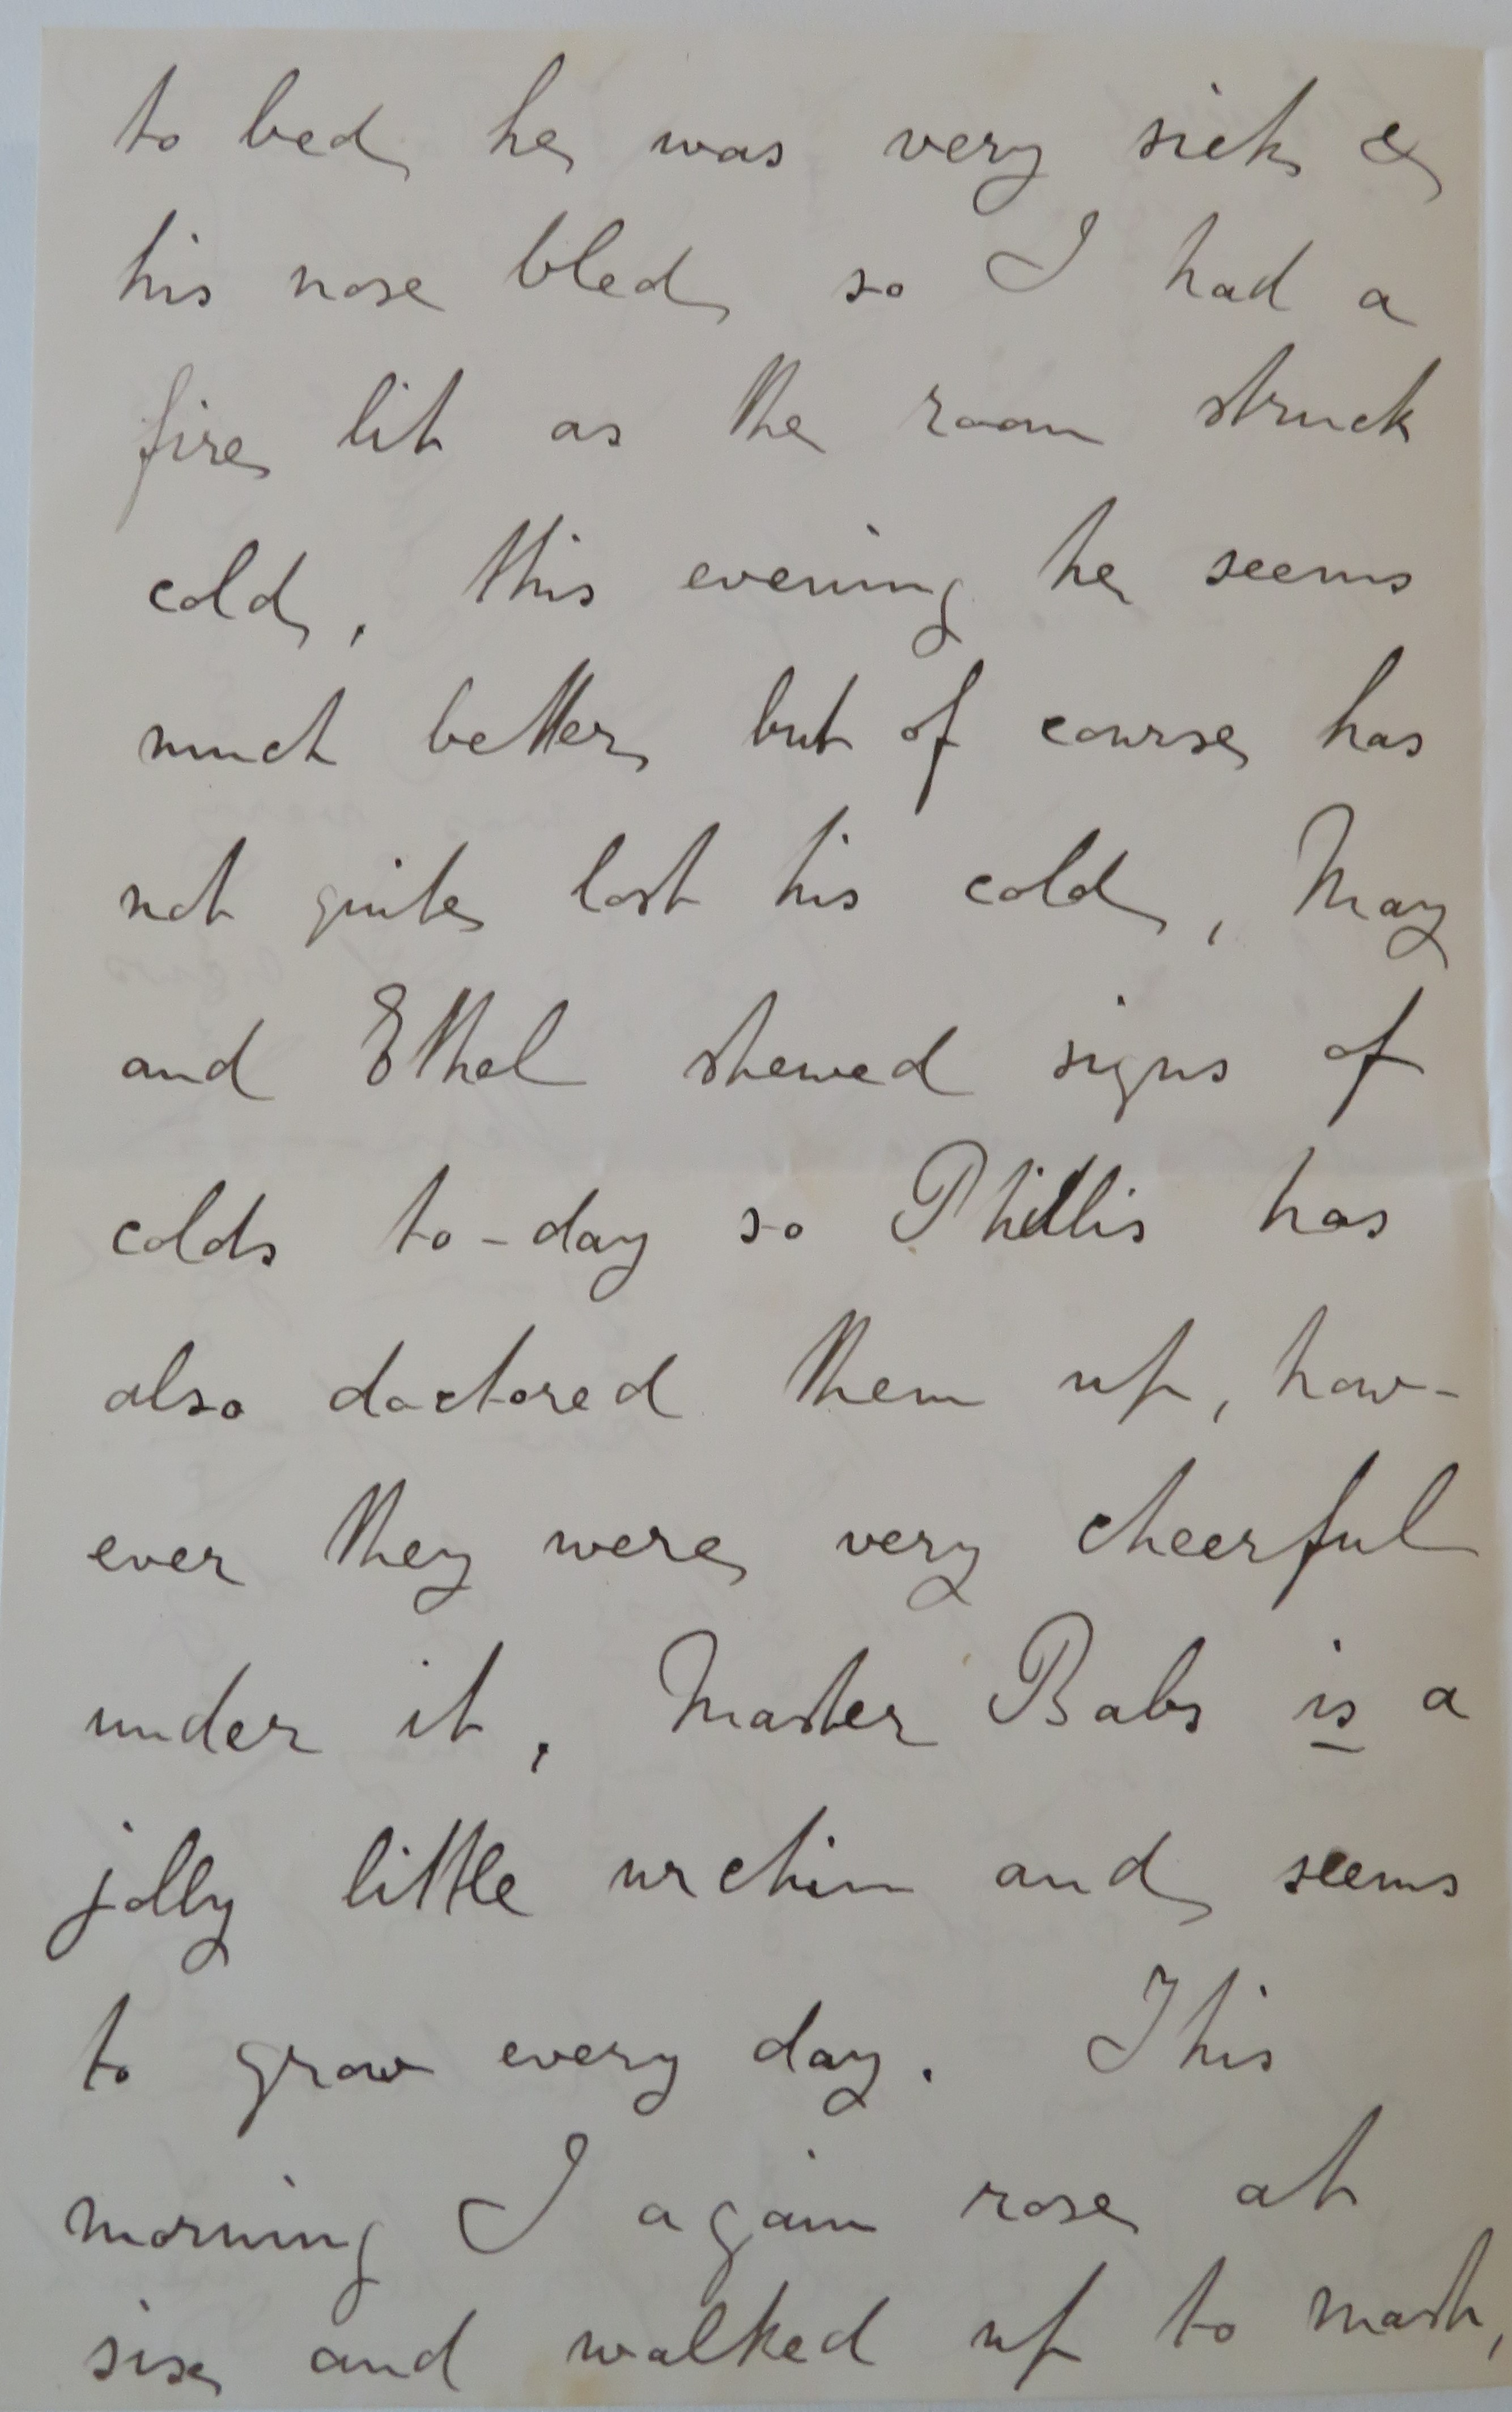 to bed he was very sick &
his nose bled so I had a
fire lit as the room struck
cold, this evening he seems
much better but of course has
not quite lost his cold, May
and Ethel shewed signs of
colds to-day so Phillis has
also doctored them up, how-
ever they were very cheerful
under it, Master Babs is a
jolly little urchin and seems
to grow every day. This
morning I again rose at
six and walked up to mash,